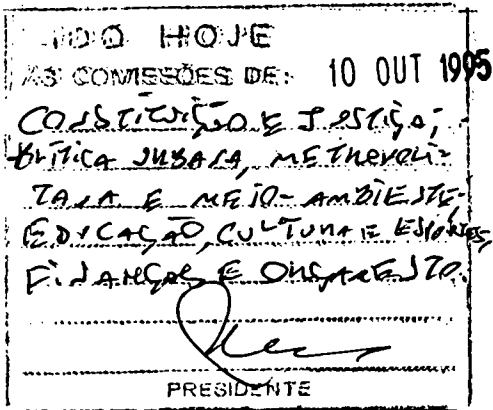 LIDO HOJE
ÀS COMISSÕES DE: 10 OUT 1995
CONSTITUIÇÃO E JUSTIÇA;
POLÍTICA URBANA, METROPOLI-
TANA E MEIO-AMBIENTE;
EDUCAÇÃO, CULTURA E ESPORTES;
FINANÇAS E ORÇAMENTO.
PRESIDENTE